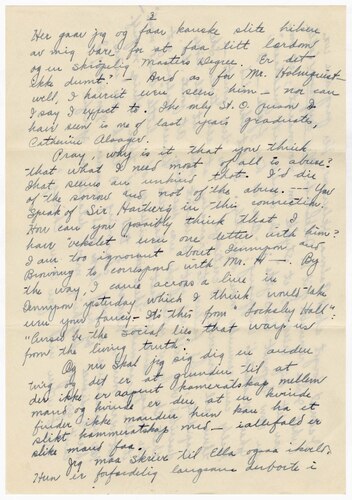 3
Her gaar jeg og faar kanske slite helsen
av mig bare for at faa litt lærdom
og en skrøpelig Masters Degree. Er det
ikke dumt? – And as for Mr. Holmquist
well, I haven't even seen him – nor can
I say I expect to. The only St. O. person I
have seen is one of last year's graduate,
Catherine
Pray, why is it that you think
that what I need most of all is abuse?
That seems an unkind thot. I'd die
of the sorrow but not of the abuse. --- You
speak of Sir. in this connection.
How can you possibly think that I
have "vekslet" even one letter with him?
I am too ignorant about Tennyson and
Browning to correspond with Mr. H—. By
the way, I came across a line in
Tennyson yesterday which I think would take
even your fancy – It's this from "Locksley Hall":
"Cursed be the social lies that warp us
from the living truth".
Og nu skal jeg sig dig en anden
ting og det er at grunden til at
der ikke er saapnt kameratskap mellem
mand og kvinde er den at en kvinde
finder ikke manden hun kan ha et
slikt kammeratskap med – iallefald er
slike mænd faa.
Jeg maa skrive til Ella ogsaa ikveld.
Hun er forfærdelig langsom derborte i